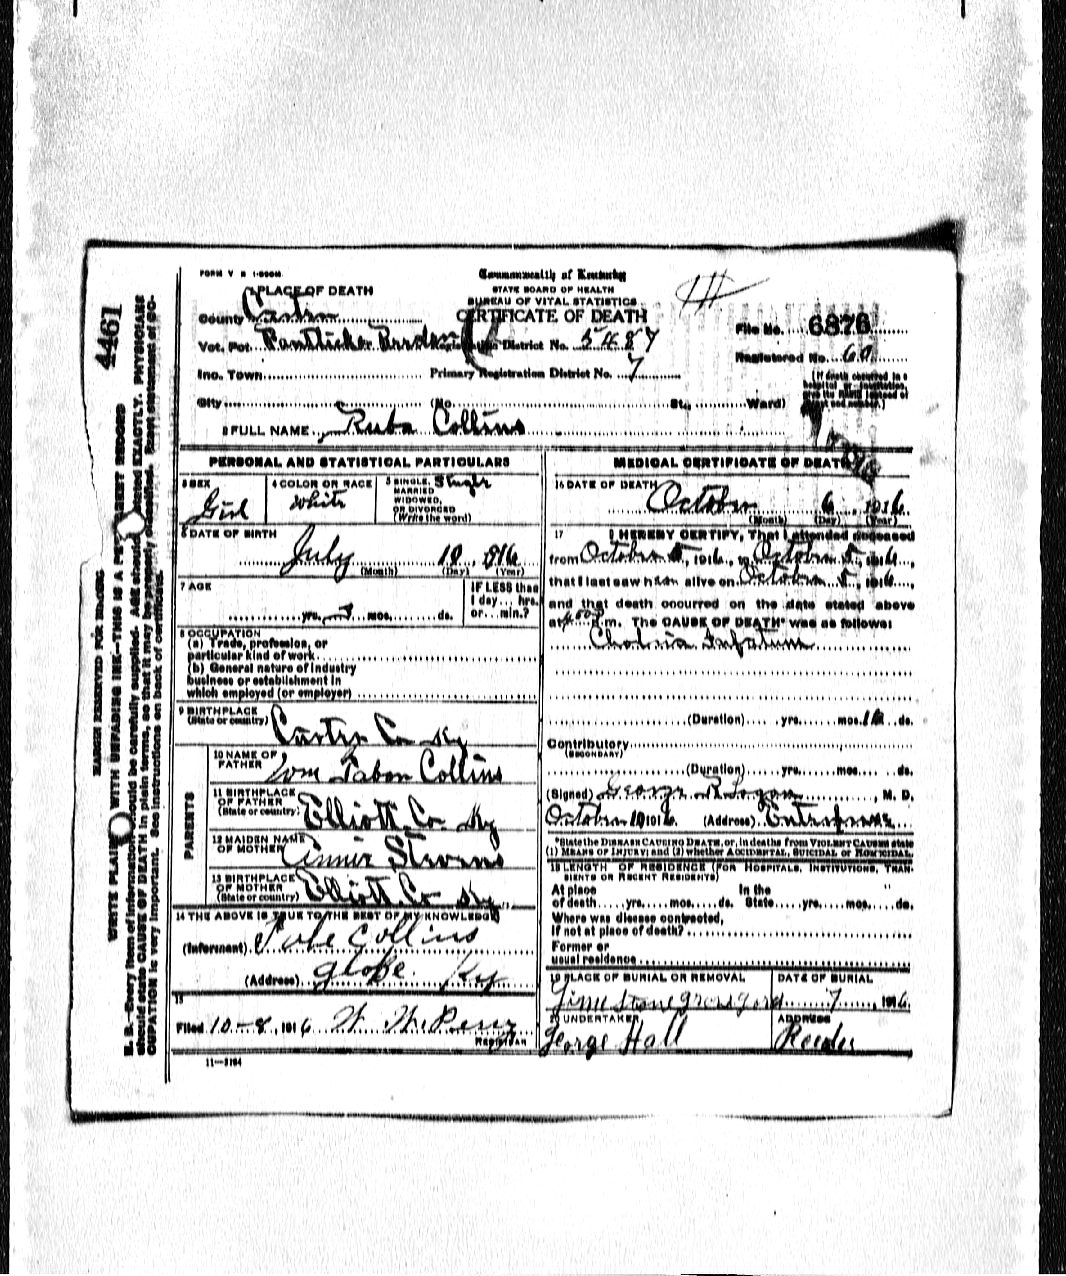 FORM V S 1-
Commonwealth of Kentucky
STATE BOARD OF HEALTH
BUREAU OF VITAL STATISTICS
CERTIFICATE OF DEATH
1 PLACE OF DEATH
County Carter
Vot. Pct. Registration District No. 5487
File No. 6876
Registered No. 60
Inc. Town Primary Registration District No. 7
(If death occurred in a hospital or institution, give its NAME instead of street and number.)
City (No. St., Ward)
2 FULL NAME Ruba Collins
PERSONAL AND STATISTICAL PARTICULARS
3 SEX Girl
4 COLOR OR RACE White
5 SINGLE, MARRIED WIDOWED, OR DIVORCED (Write the word) Single
6 DATE OF BIRTH
July 10, 916
(Month) (Day) (Year)
7 AGE
yrs. mos. ds.
IF LESS than 1 day... hrs. or... min.?
8 OCCUPATION
(a) Trade, profession, or
particular kind of work
(b) General nature of industry
business or establishment in
which employed (or employer)
9 BIRTHPLACE
(State or country) Carter Co Ky
PARENTS
10 NAME OF FATHER Wm Tabor Collins
11 BIRTHPLACE OF FATHER (State or country) Elliott Co Ky
12 MAIDEN NAME OF MOTHER Annie Stevens
13 BIRTHPLACE OF MOTHER (State or country) Elliott Co Ky
14 THE ABOVE IS TRUE TO THE BEST OF MY KNOWLEDGE
(Informant) Collins
(Address) Globe Ky
15
Filed 10-8, 1916 REGISTRAR
11-3184
MEDICAL CERTIFICATE OF DEATH
16 DATE OF DEATH
October 6, 1916
(Month) (Day) (Year)
17 I HEREBY CERTIFY, That I attended deceased
from October 5, 1916, to October 5, 1916,
that I last saw her alive on October 5, 1916,
and that death occurred on the date stated above
at m. The CAUSE OF DEATH* was as follows:
Cholria Infatum
(Duration) yrs. mos. ds.
Contributory
(SECONDARY)
(Duration) yrs. mos. ds.
(Signed) George R Logan, M. D.
October 10 1916 (Address) Enterprise
*State the DISEASE CAUSING DEATH, or, in deaths from VIOLENT CAUSES state
(1) MEANS OF INJURY; and (2) whether ACCIDENTAL, SUICIDAL or HOMICIDAL.
18 LENGTH OF RESIDENCE (FOR HOSPITALS, INSTITUTIONS, TRANSIENTS OR RECENT RESIDENTS)
At place In the
of death yrs. mos. ds. State yrs. mos. ds.
Where was disease contracted,
If not at place of death?
Former or
usual residence
19 PLACE OF BURIAL OR REMOVAL
DATE OF BURIAL
7, 1916
20 UNDERTAKER
George Hall
ADDRESS
Reeder
4461
MARGIN RESERVED FOR BINDING
WRITE PLAINLY WITH UNFADING INK—THIS IS A PERMANENT RECORD
N. B.—Every item of information should be carefully supplied. AGE should be stated EXACTLY. PHYSICIANS
should state CAUSE OF DEATH in plain terms, so that it may be properly classified. Exact statement of OC-
CUPATION is very important. See instructions on back of certificate.